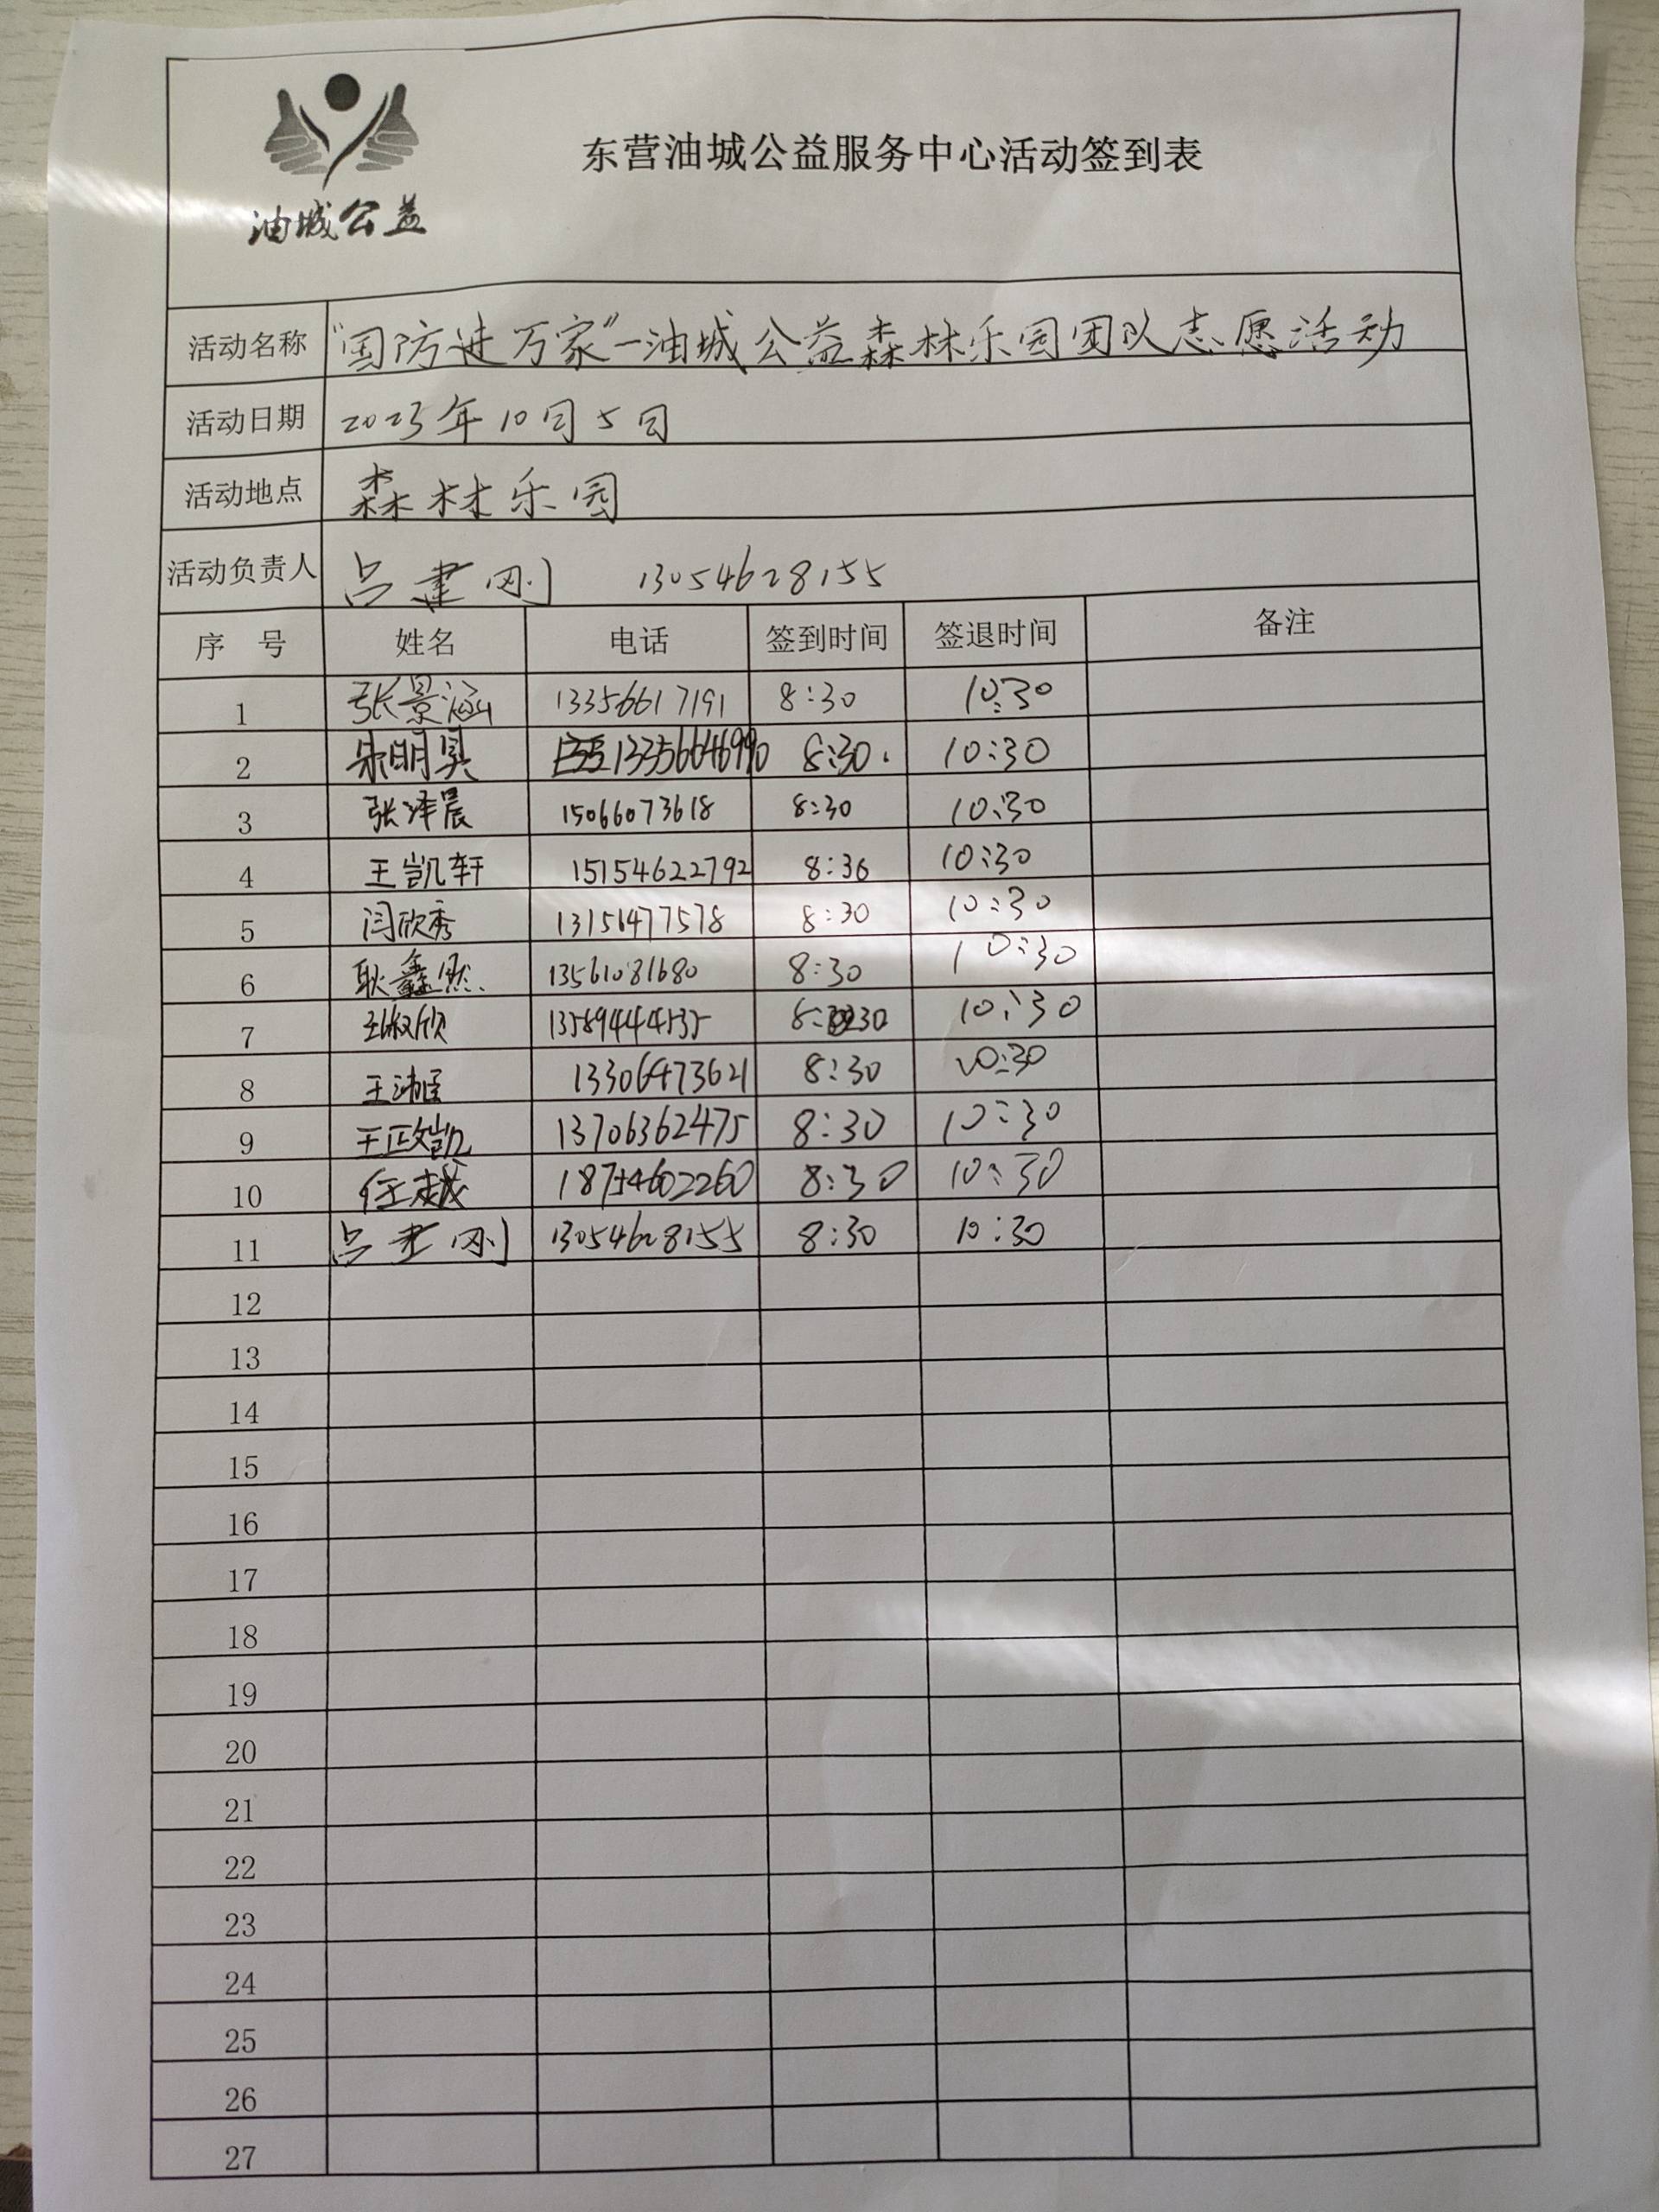 东营油城公益服务中心活动签到表
油城公益
活动名称 "国防进万家"-油城公益森林乐园团队志愿活动
活动日期 2023年10月5日
活动地点 森林乐园
活动负责人 吕建刚 13054628155
序 号 姓名 电话 签到时间 签退时间 备注
1 张景涵 13356617191 8:30 10:30
2 朱明昊 13356646990 8:30. 10:30
3 张泽晨 15066073618 8:30 10:30
4 王凯轩 15154622792 8:36 10:30
5 闫欣秀 13156477578 8:30 10:30
6 耿鑫然 13561081680 8:30 10:30
7 13589444535 8:30 10:30
8 13306473621 8:30 10:30
9 王政凯 13706362475 8:30 10:30
10 任越 18754602260 8:30 10:30
11 吕建刚 13054628155 8:30 10:30
12
13
14
15
16
17
18
19
20
21
22
23
24
25
26
27